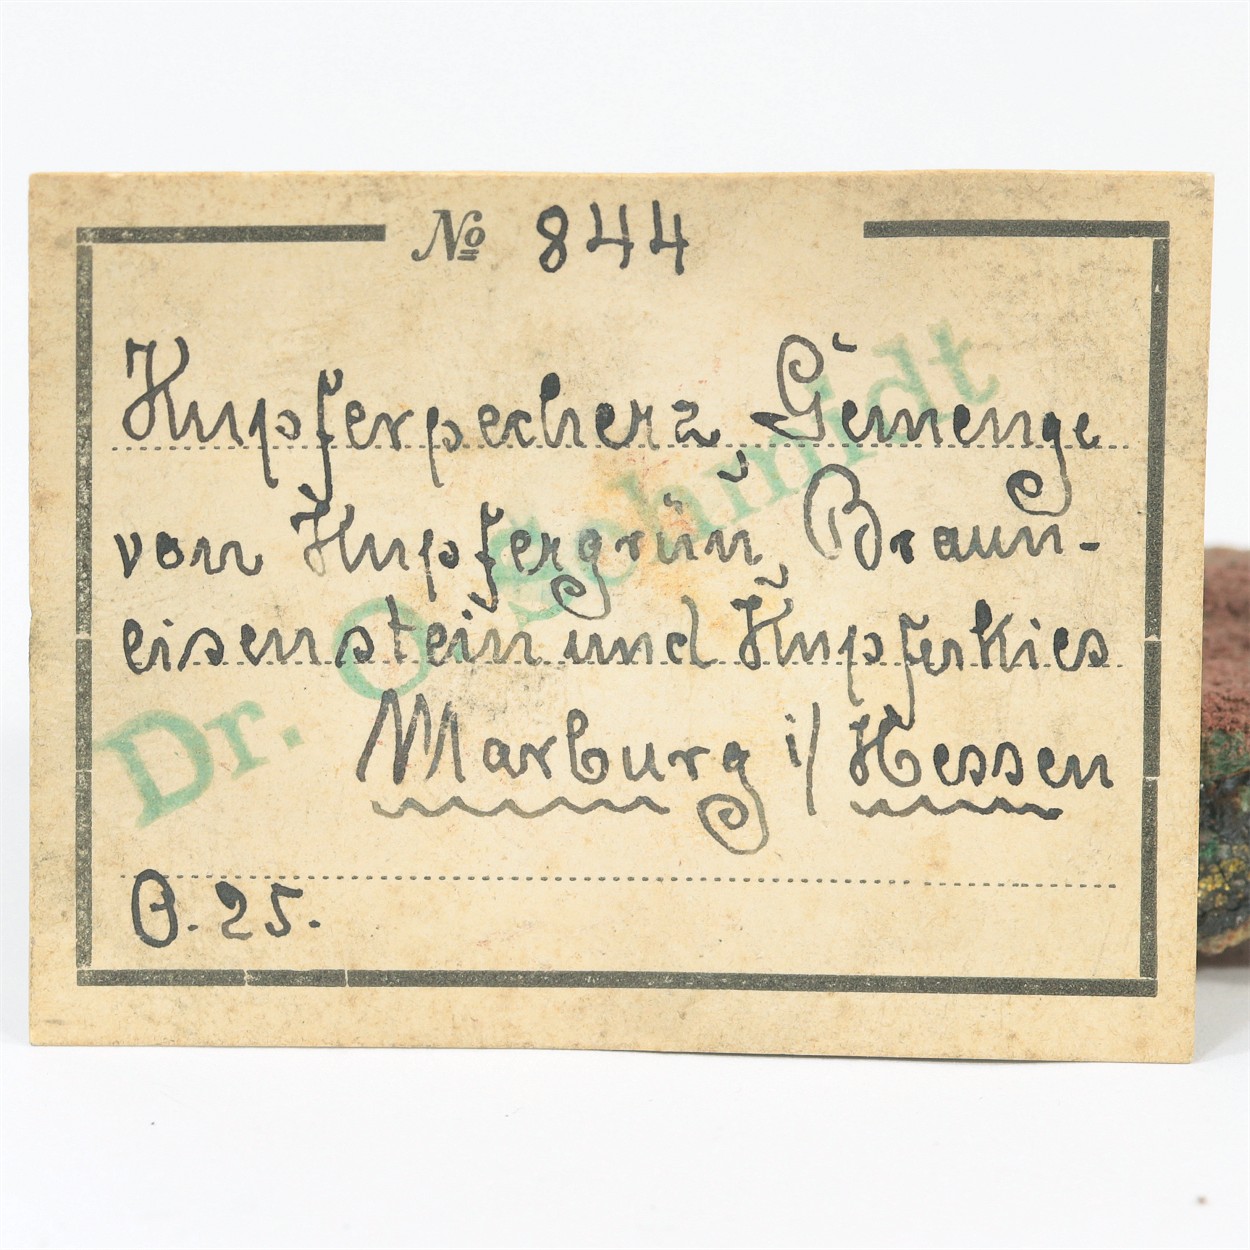 No 844
Kupferpecherz Gemenge
von Kupfergrün Braun-
eisenstein und Kupferkies
Marburg i/ Hessen
B. 25.
Dr. O Schmidt